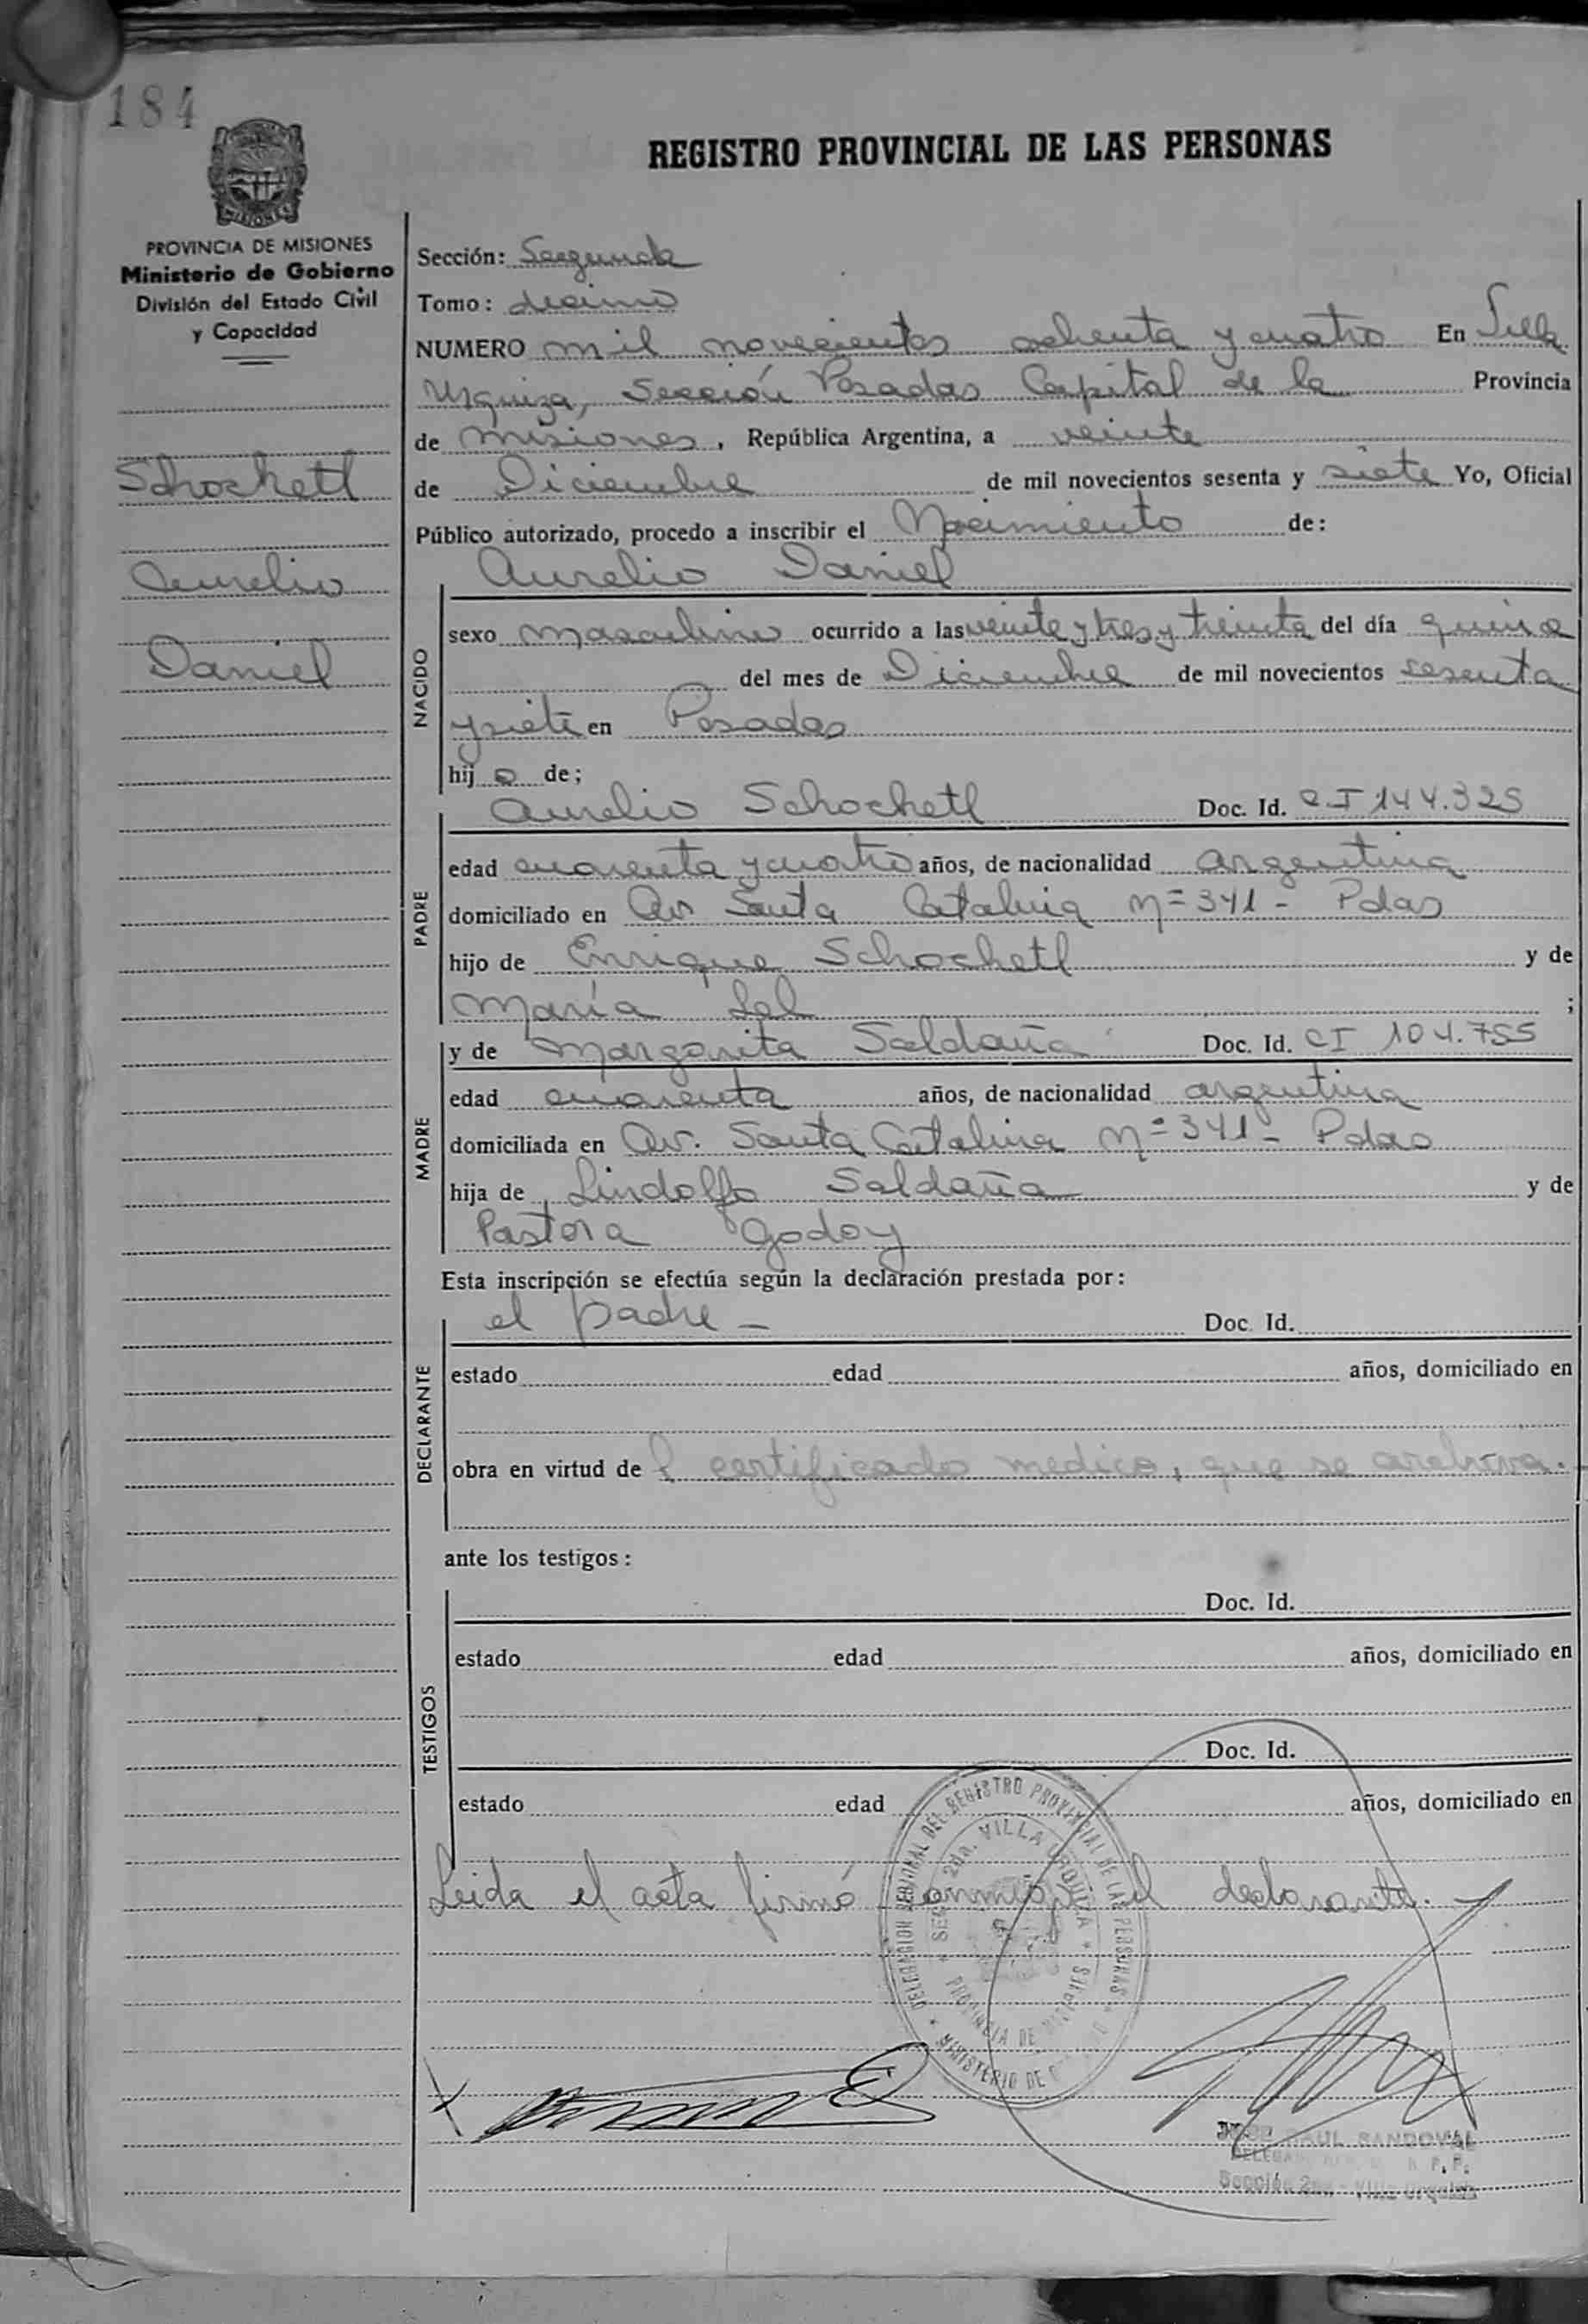 184
REGISTRO PROVINCIAL DE LAS PERSONAS
MISIONES
PROVINCIA DE MISIONES
Ministerio de Gobierno
División del Estado Civil
y Capacidad
Schochetl
Aurelio
Daniel
Sección: Segunda
Tomo: decimo
NUMERO mil novecientos ochenta y cuatro En Villa
Urquiza, Sección Posadas Capital de la Provincia
de Misiones, República Argentina, a veinte
de Diciembre de mil novecientos sesenta y siete Yo, Oficial
Público autorizado, procedo a inscribir el Nacimiento de:
Aurelio Daniel
NACIDO
sexo masculino ocurrido a las veinte y tres y treinta del día quince
del mes de Diciembre de mil novecientos sesenta
y siete en Posadas
hij o de;
Aurelio Schochetl Doc. Id. CI 144.325
PADRE
edad cuarenta y cuatro años, de nacionalidad argentina
domiciliado en Av Santa Catalina Nº 341 - Pdas
hijo de Enrique Schochetl y de
María Lel ;
y de Margarita Saldaña Doc. Id. CI 104.755
MADRE
edad cuarenta años, de nacionalidad argentina
domiciliada en Av. Santa Catalina Nº 341 - Pdas
hija de Lindolfo Saldaña y de
Pastora Godoy
Esta inscripción se efectúa según la declaración prestada por:
el padre - Doc. Id.
DECLARANTE
estado edad años, domiciliado en
obra en virtud de l certificado medico, que se archiva.
ante los testigos:
Doc. Id.
TESTIGOS
estado edad años, domiciliado en
Doc. Id.
estado edad años, domiciliado en
Leida el acta firmó conmigo el declarante.
DELEGACION REGIONAL DEL REGISTRO PROVINCIAL DE LAS PERSONAS
SEC. 2da. VILLA URQUIZA
PROVINCIA DE MISIONES
MINISTERIO DE
JOSE RAUL SANDOVAL
Sección 2da - Villa Urquiza